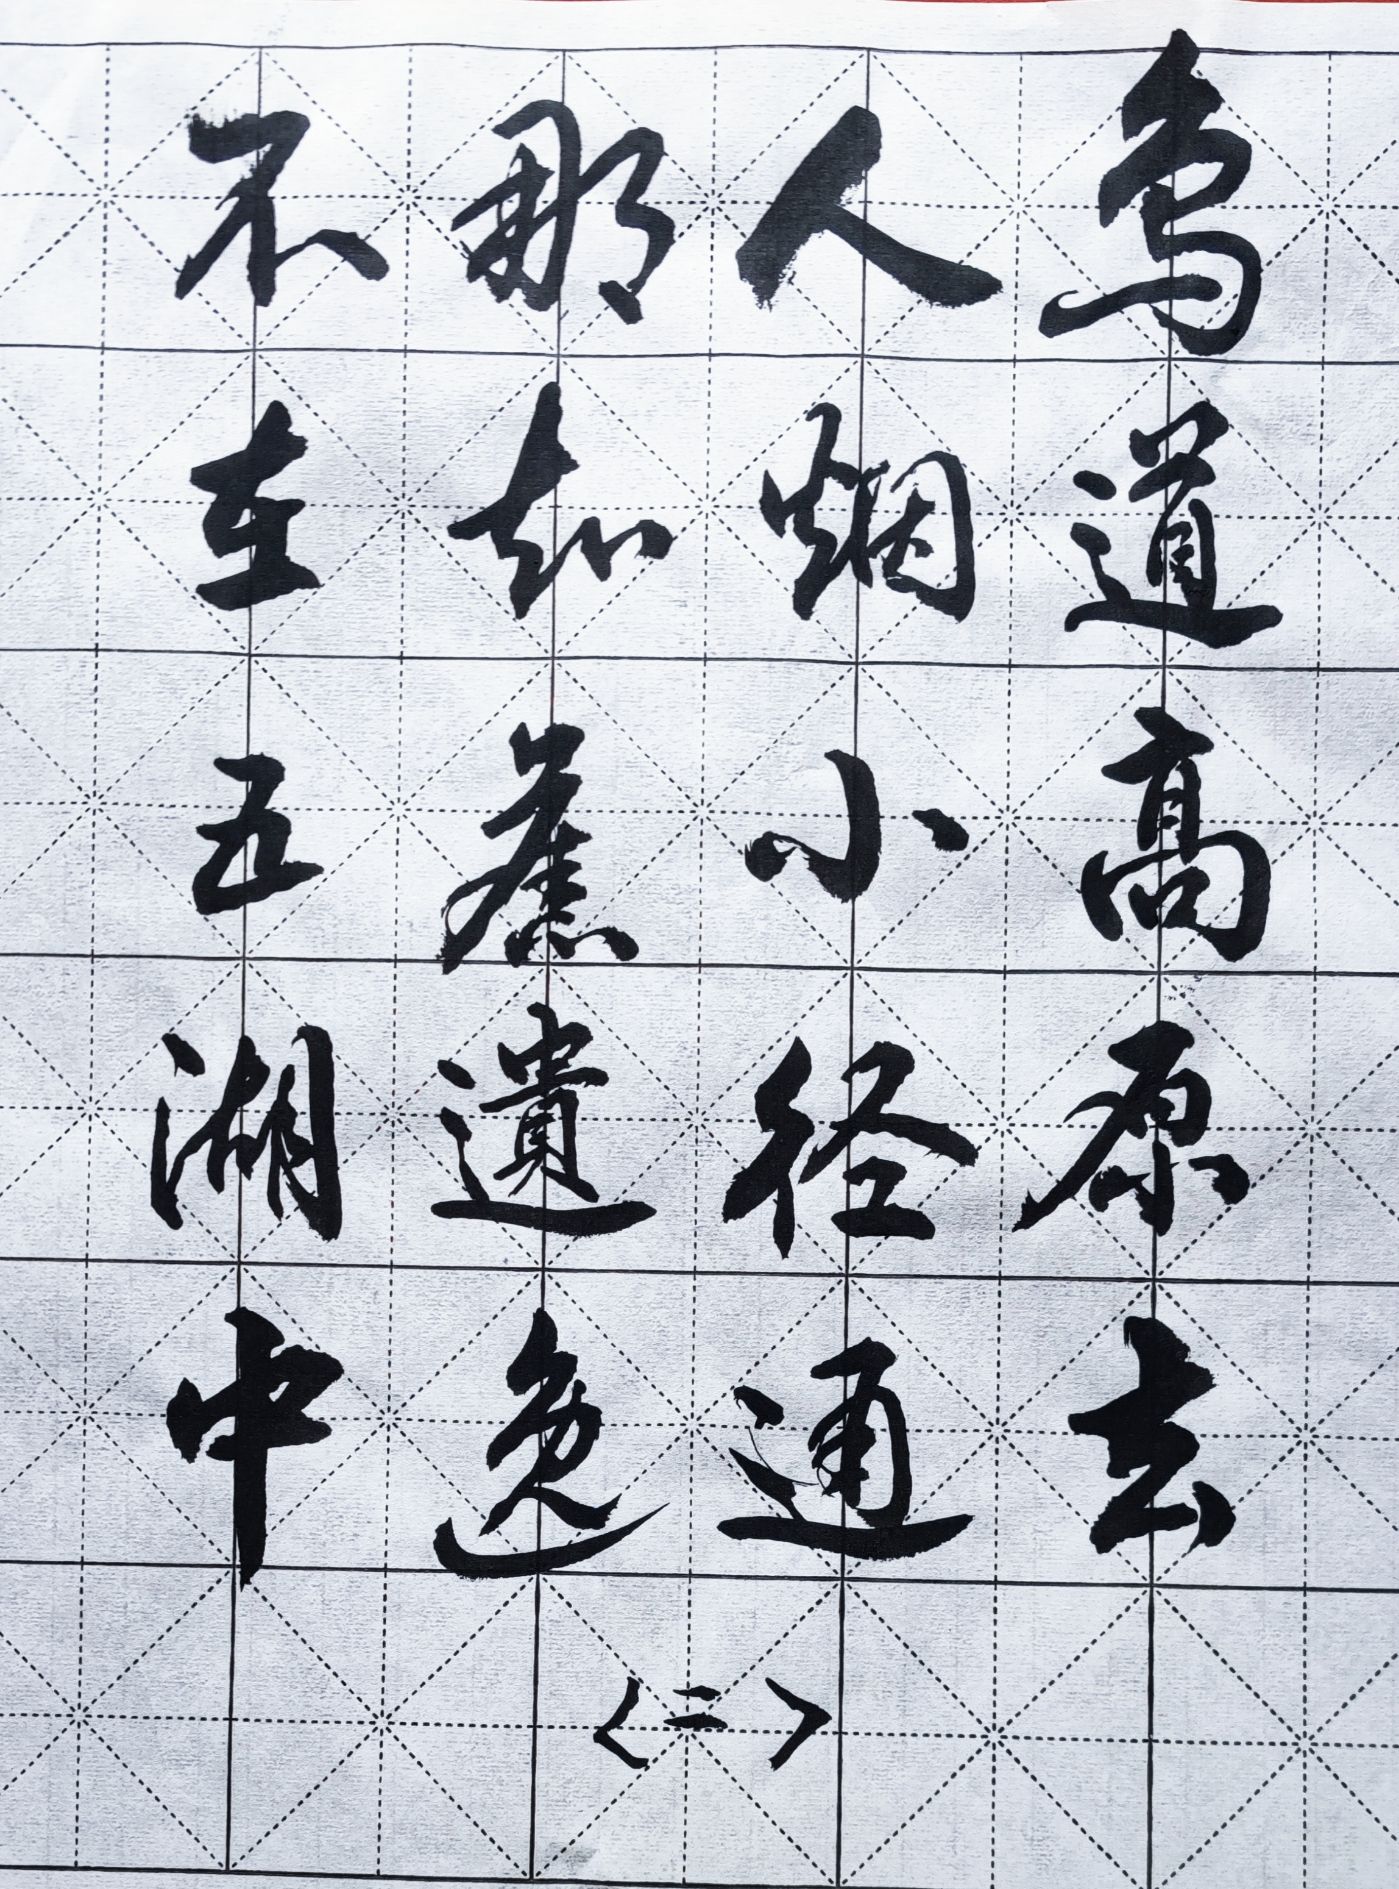 鸟道高原去
人烟小径通
那知舊遺逸
不在五湖中
〈二〉